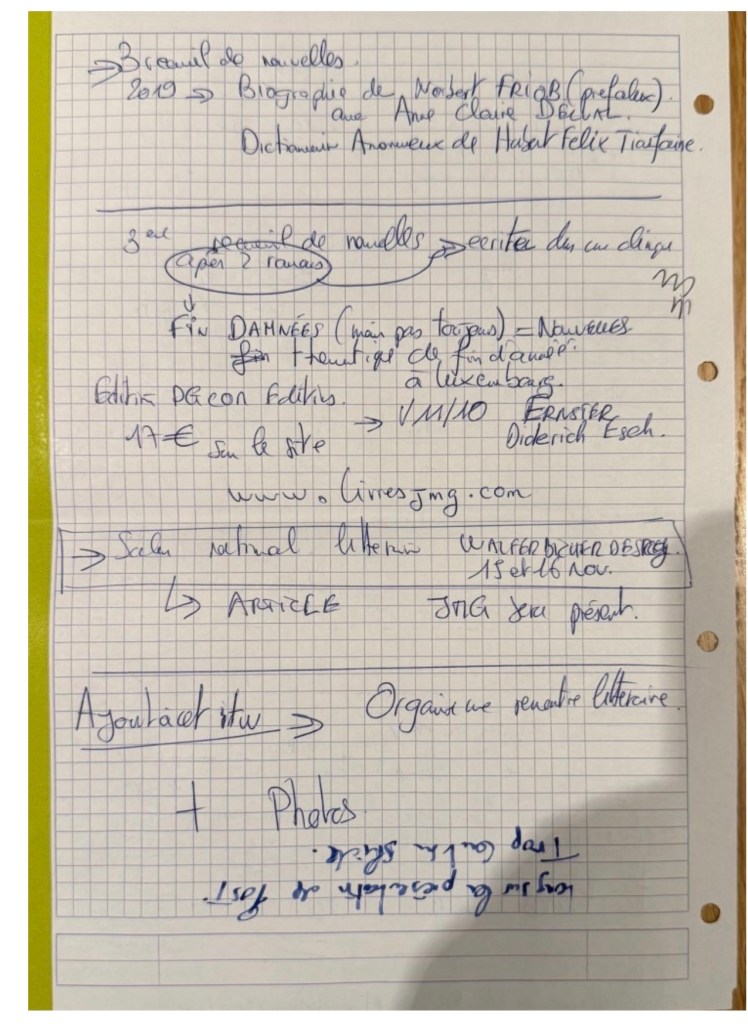 => 3 recueil de nouvelles.
2019 -> Biographie de Norbert FRIOB (prefalux).
avec Anne Claire
Dictionnaire Amoureux de Hubert Felix Tiaifaine.
3eme recueil de nouvelles => ecrites
après 2 romans
FIN DAMNÉES (mais pas toujours) = NOUVELLES
thematique de fin d'année.
à Luxembourg.
Edition DGcon Editions.
-> V 11/10 ERNSTER
17€ sur le site Diderich Esch.
www.livresJmg.com
=> Salon national litteraire WALFERBICHERDEEG.
15 et 16 Nov.
↳ ARTICLE JMG sera présent.
Ajout à cet itw => Organise une rencontre litteraire.
+ Photos.
long sur la présentation de Post.
Trop